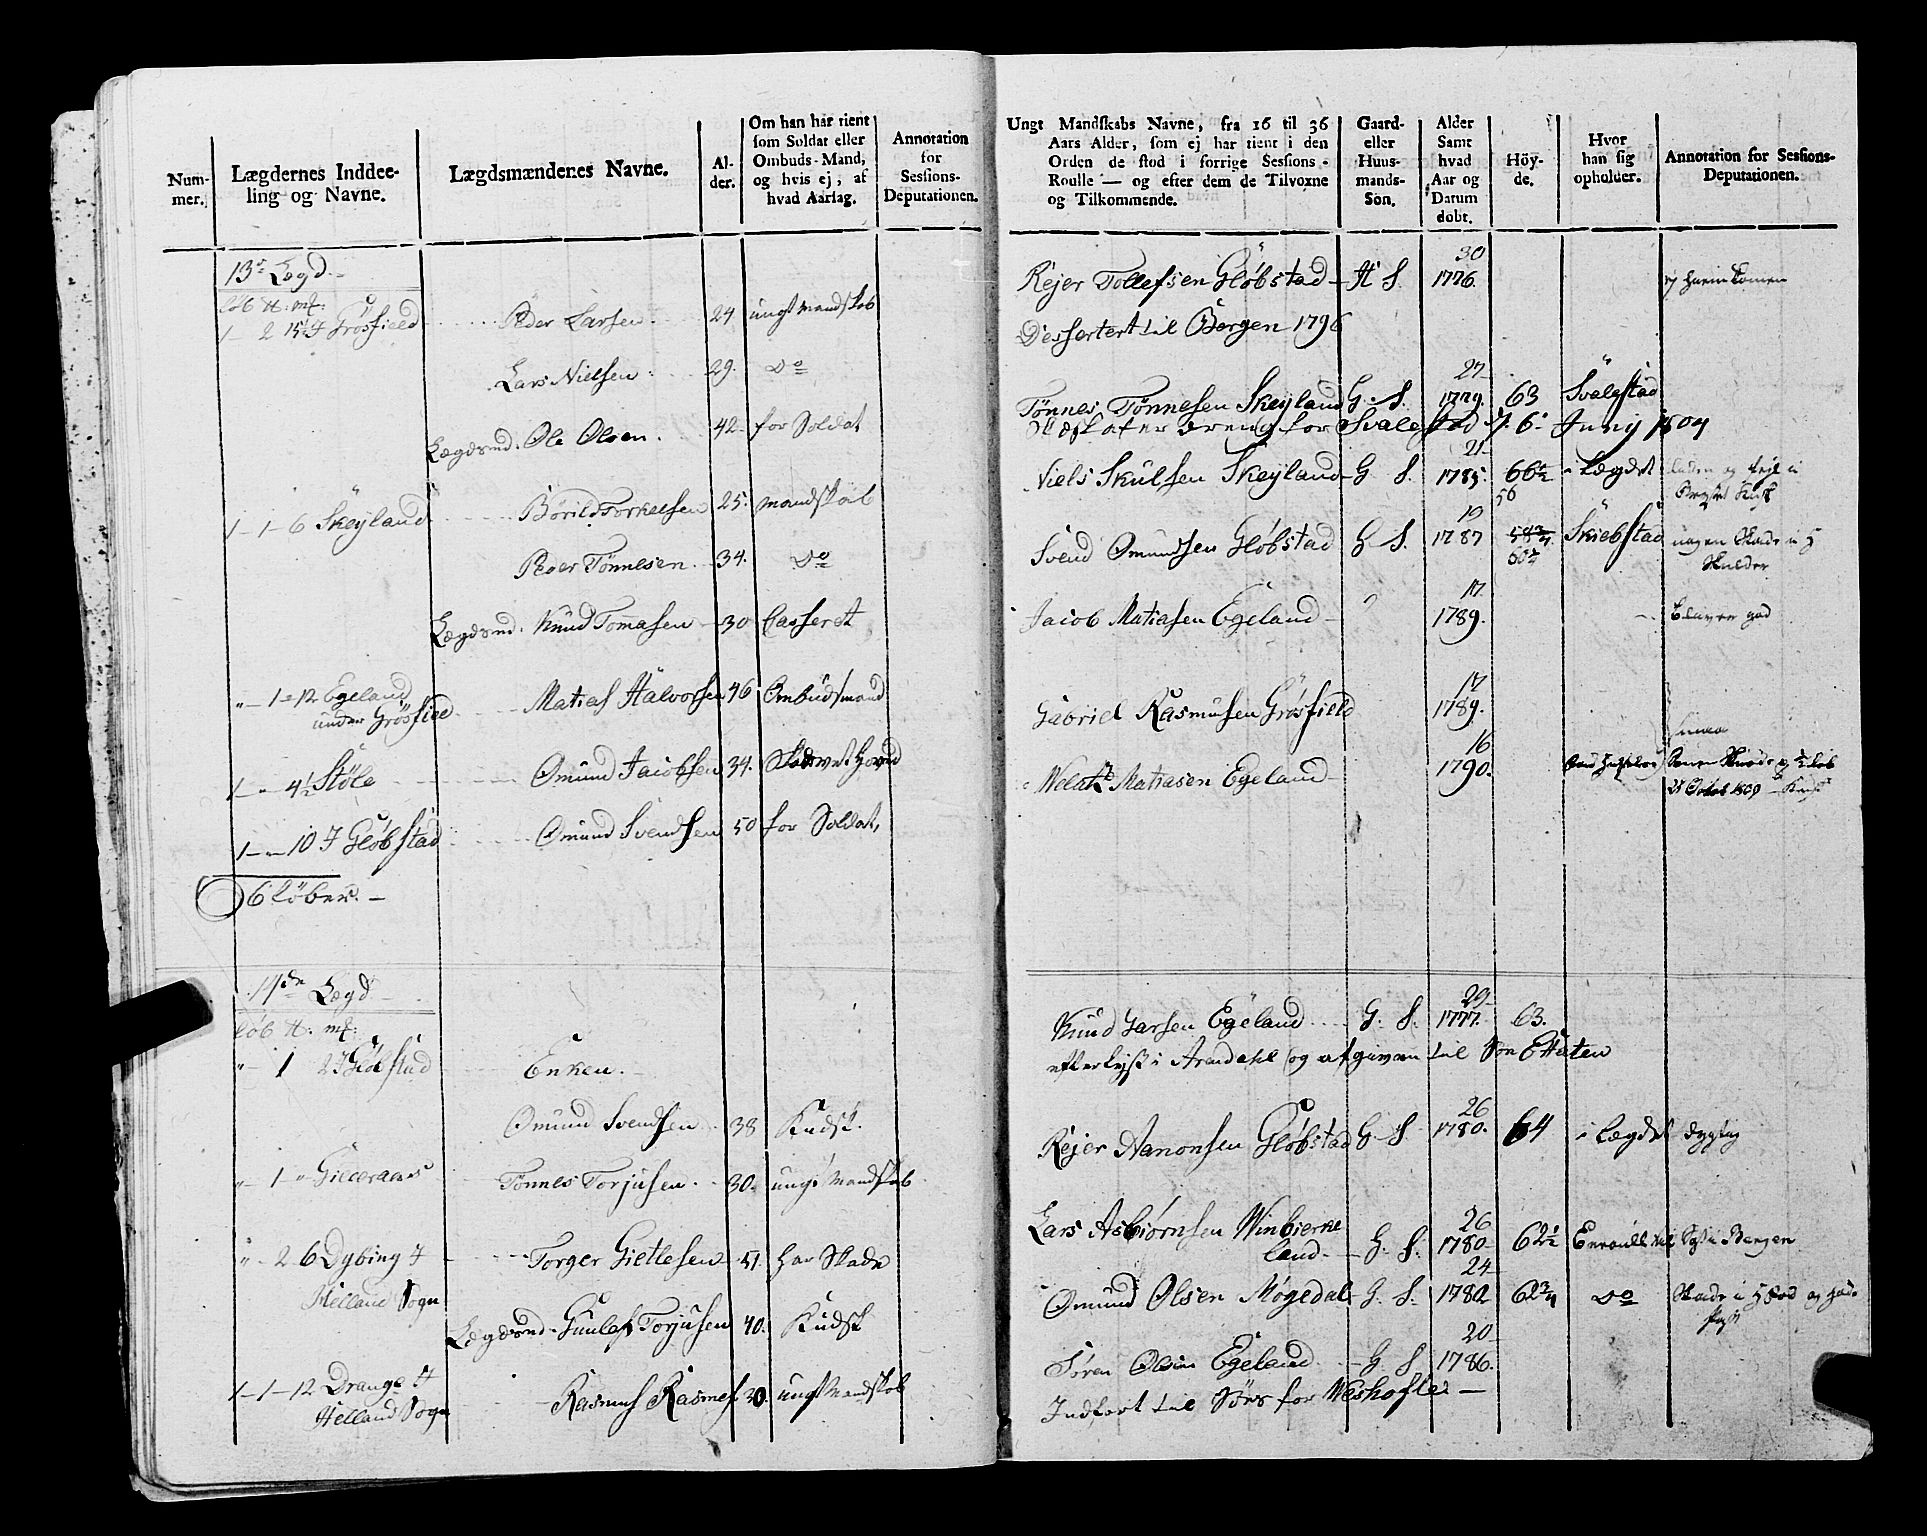 Num-
mer.
Lægdernes Inddee-
ling og Navne.
Lægdsmændenes Navne.
Al-
der.
Om han har tient
som Soldat eller
Ombuds-Mand,
og hvis ej, af
hvad Aarsag.
Annotation
for
Sessions-
Deputationen.
13de Lægd.
løb H: mk:
1 — 2 15½ I Grösfield
Peder Larsen. 24 ungt mandskab
Lars Nielsen. 29. do
Lægdsmd. Ole Olsen. 42 for Soldat
1 — 1 — 6 Skeyland
Börild Torkelsen 25. mandskab
Peder Tönnesen. 34. do
Lægdsmd. Knud Tomasen 30 Casseret
" — 1 — 12 Egeland
under Grösfield
Matias Halvorsen 46 Ombudsmand
1 — " 4½ Stöle
Omund Jacobsen 34.
1 — " — 10 I Glöbstad
Omund Svendsen 50 for Soldat,
6 löber. —
14de Lægd
løb H: mk:
" — 1 2 I Glöbstad
Enken.
Omund Svendsen 38 Kudsk.
" — 1 "
Tönnes Torjusen. 30. ungt Mandskab
" — 2 6 Dybing I
Helland Sogn
Torger Gietlesen 51 har Skade
Lægdsmd. Gunlef Torjusen 40. Kudsk
1 — 1 — 12 Drange I
Helland Sogn
Rasmus Rasmes 30. ungt Mandskab
Ungt Mandskabs Navne, fra 16 til 36
Aars Alder, som ej har tient i den
Orden de stod i forrige Sessions-
Roulle — og efter dem de Tilvoxne
og Tilkommende.
Gaard-
eller
Huus-
mands-
Søn.
Alder
Samt
hvad
Aar og
Datum
døbt.
Höy-
de.
Hvor
han sig
opholder.
Annotation for Sessions-
Deputationen.
30
Rejer Tollefsen Glöbstad — H S. 1776.
Dessertert til Bergen 1796
27
Tönnes Tönnesen Skeyland G. S. 1779. 63 Svalestad
dreng for Svalestad d. 6. Juny 1804
21
Niels Skulsen Skeyland — G S. 1785. 66½ i Lægdet
56
19
Svend Omundsen Glöbstad G. S. 1787 58¾ Skiebstad
60½
Skulder
17
Jacob Matiasen Egeland 1789.
17
Gabriel Rasmusen Grösfield 1789.
16
Matiasen Egeland 1790.
1809
29
Knud Larsen Egeland G. S. 1777. 63.
efterlyst i Arendahl og afgiven til Søn Etaten
26
Rejer Aanonsen Glöbstad G S 1780. 64 i Lægdet dygtig
26
Lars Asbiörnsen Winbierne
land. G. S. 1780 62½ Enroull til Bergen
24
Omund Olsen Mögedal G. S. 1782 62¾ do
20
Sören Olsen Egeland G S 1786.
Indfort til Söes for